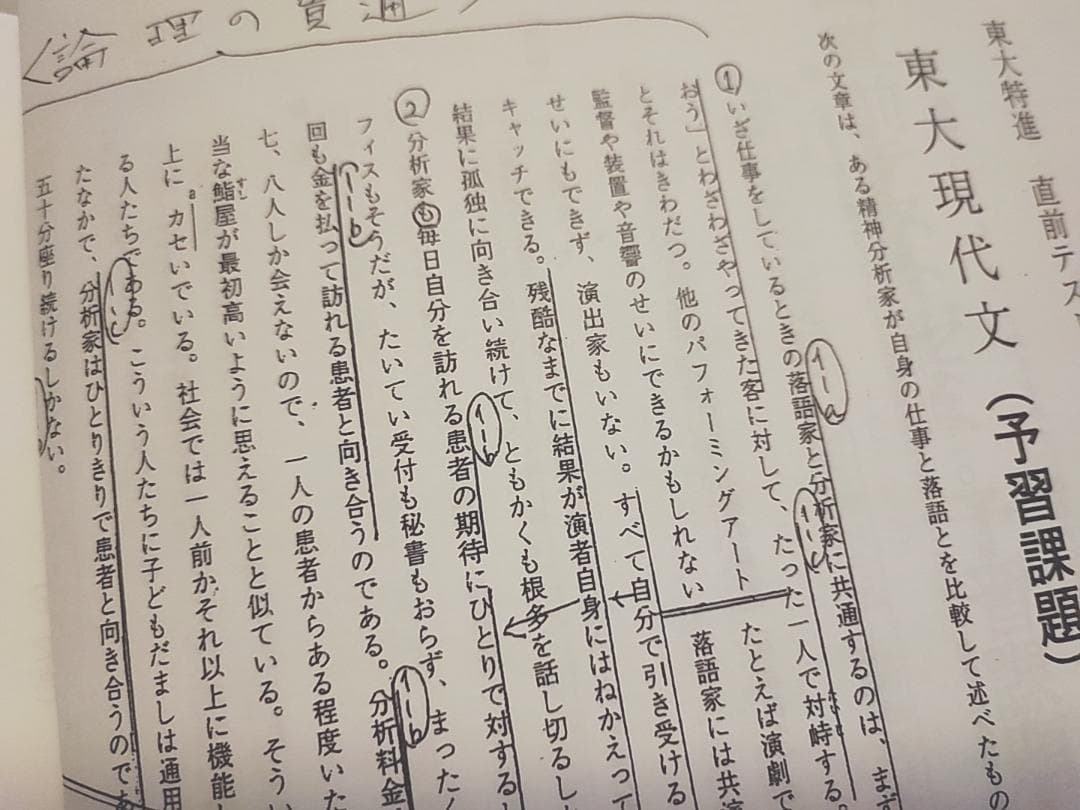 〈論理の貫通
東大特進 直前テス
東大現代文(予習課題)
次の文章は、ある精神分析家が自身の仕事と落語とを比較して述べたもの
① いざ仕事をしているときの落語家と分析家に共通するのは、まず
たった一人で対峙する
おう」とわざわざやってきた客に対して、
とそれはきわだつ。他のパフォーミングアート たとえば演劇で
監督や装置や音響のせいにできるかもしれない 落語家には共演
せいにもできず、演出家もいない。すべて自分で引き受ける
キャッチできる。残酷なまでに結果が演者自身にはねかえって
結果に孤独に向き合い続けて、ともかくも根多を話し切るし
② 分析家も毎日自分を訪れる患者の期待にひとりで対する
フィスもそうだが、たいてい受付も秘書もおらず、まったく
回も金を払って訪れる患者と向き合うのである。分析料金
七、八人しか会えないので、一人の患者からある程度いた
当な鮨屋が最初高いように思えることと似ている。そうい
すし
上にカセいでいる。社会では一人前かそれ以上に機能し
a
る人たちである。こういう人たちに子どもだましは通用
たなかで、分析家はひとりきりで患者と向き合うのであ
五十分座り続けるしかない。
イーa
イーb
イーb
イーb